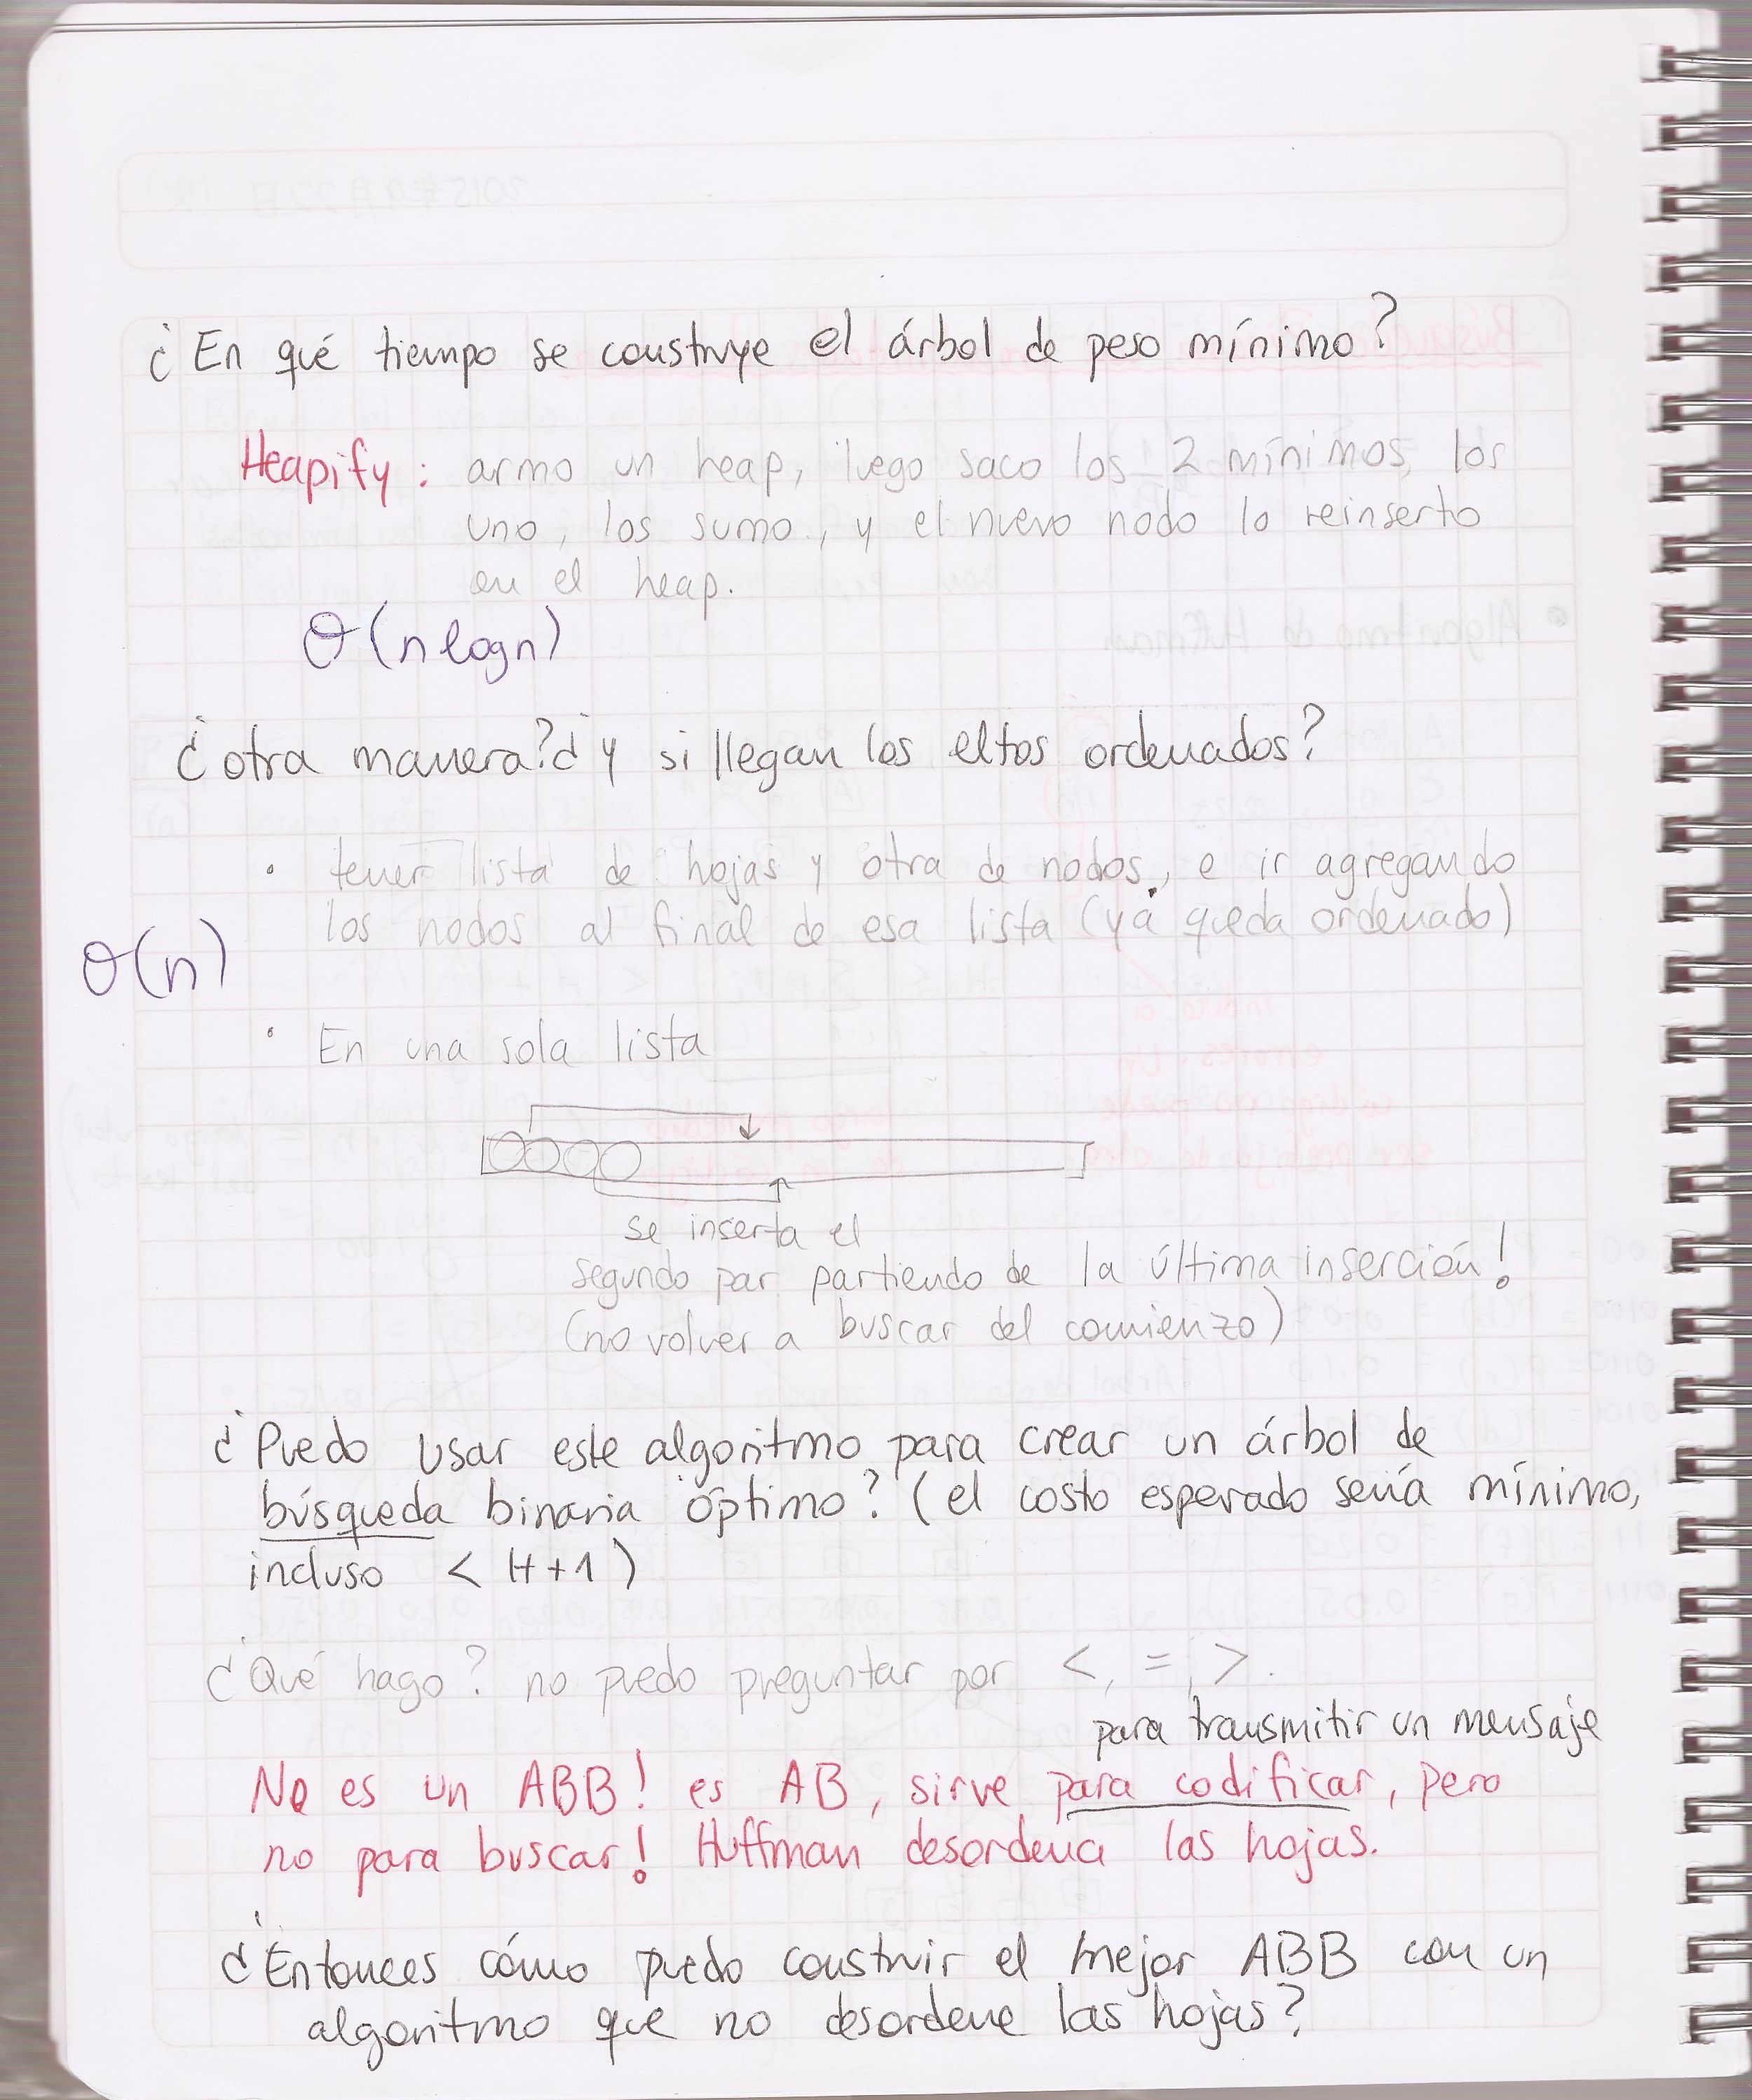 ¿En qué tiempo se construye el árbol de peso mínimo?
Heapify: armo un heap, luego saco los 2 mínimos, los
uno, los sumo, y el nuevo nodo lo reinserto
en el heap.
Θ(n logn)
¿otra manera? ¿y si llegan los eltos ordenados?
• tener lista de hojas y otra de nodos, e ir agregando
los nodos al final de esa lista (ya queda ordenado)
Θ(n)
• En una sola lista
se inserta el
segundo par partiendo de la última inserción!
(no volver a buscar del comienzo)
¿Puedo usar este algoritmo para crear un árbol de
búsqueda binaria óptimo? (el costo esperado sería mínimo,
incluso < H+1)
¿Qué hago? no puedo preguntar por <, =, >.
para transmitir un mensaje
No es un ABB! es AB, sirve para codificar, pero
no para buscar! Huffman desordena las hojas.
¿Entonces cómo puedo construir el mejor ABB con un
algoritmo que no desordene las hojas?